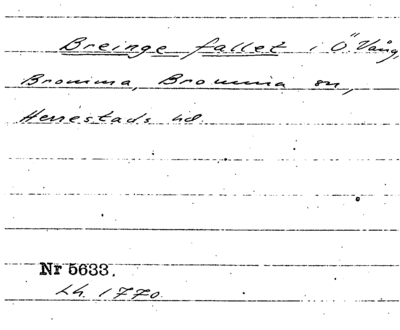 Breinge fallet i Ö Vång,
Bromma, Bromma sn,
Herrestads hd.
Nr 5633.
Lh. 1770.